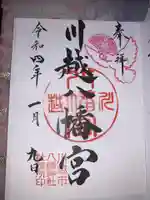 奉拝
川越八幡宮
令和四年
一月
九日